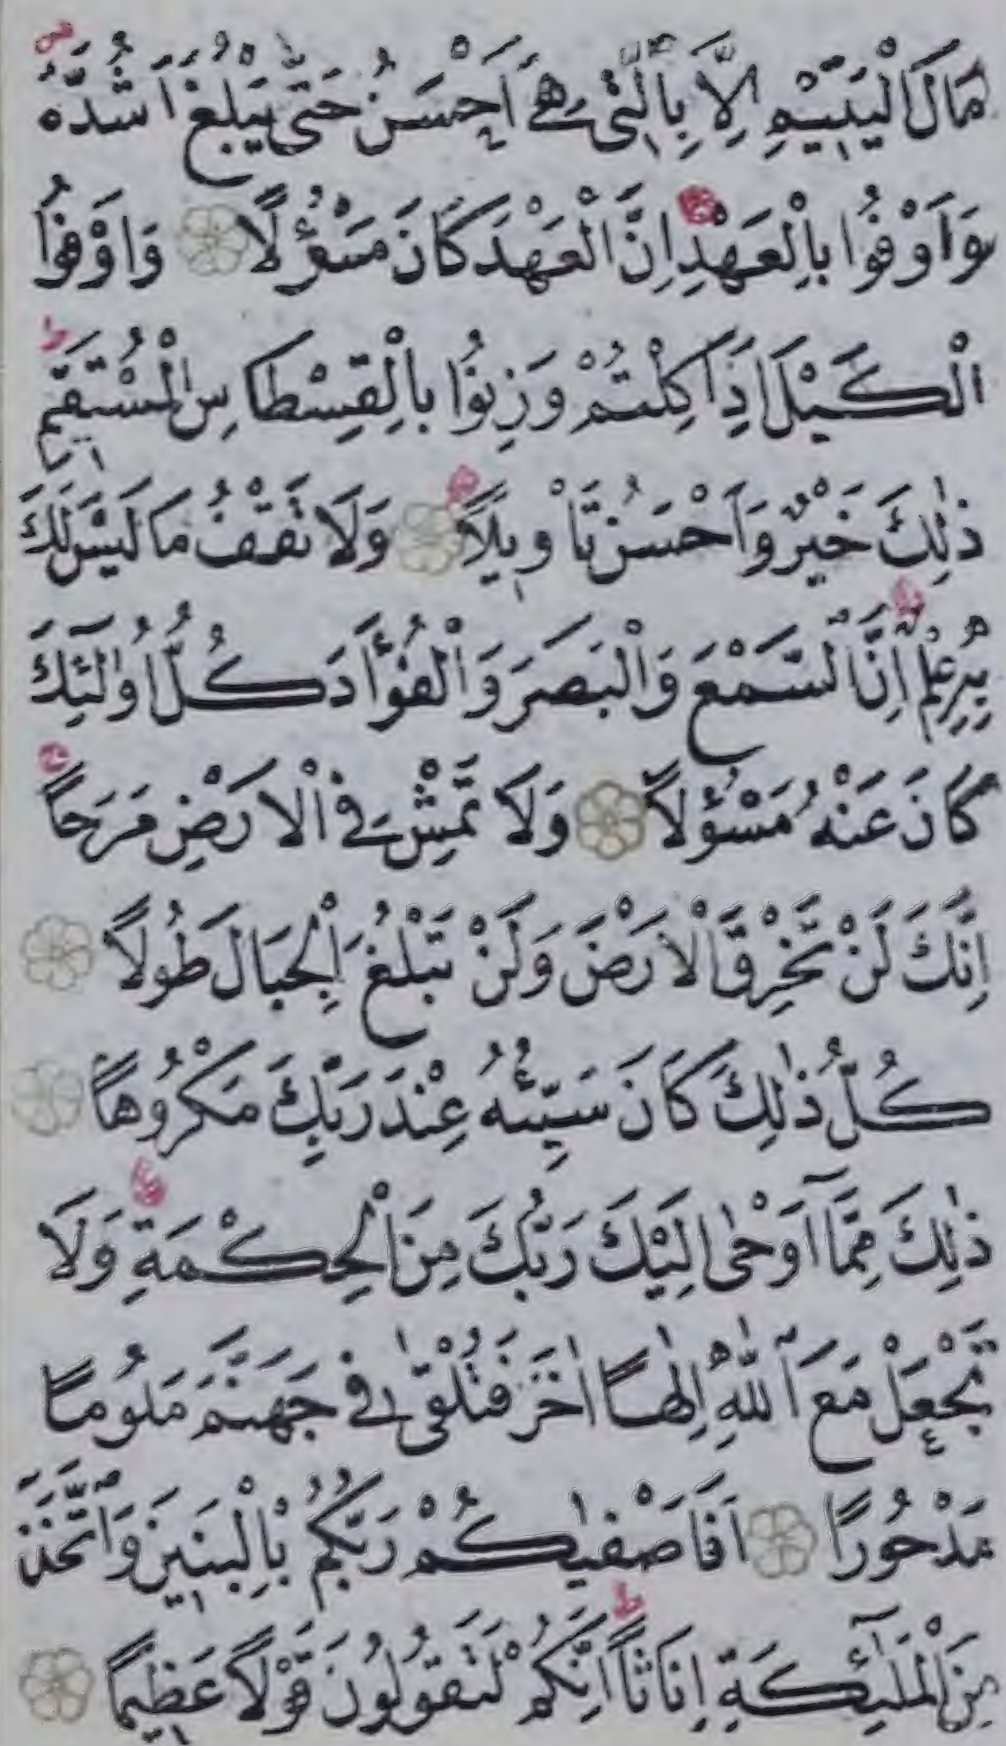 مَالَ الْيَتِيْمِ اِلَّا بِالَّتٖى هِىَ اَحْسَنُ حَتّٰى يَبْلُغَ اَشُدَّهُ
وَاَوْفُوا بِالْعَهْدِ اِنَّ الْعَهْدَ كَانَ مَسْؤُلًا وَاَوْفُوا
الْكَيْلَ اِذَا كِلْتُمْ وَزِنُوا بِالْقِسْطَاسِ الْمُسْتَقٖيمِ
ذٰلِكَ خَيْرٌ وَاَحْسَنُ تَاْوٖيلًا وَلَا تَقْفُ مَا لَيْسَ لَكَ
بِهٖ عِلْمٌ اِنَّ السَّمْعَ وَالْبَصَرَ وَالْفُؤَادَ كُلُّ اُولٰئِكَ
كَانَ عَنْهُ مَسْؤُلًا وَلَا تَمْشِ فِى الْاَرْضِ مَرَحًا
اِنَّكَ لَنْ تَخْرِقَ الْاَرْضَ وَلَنْ تَبْلُغَ الْجِبَالَ طُولًا
كُلُّ ذٰلِكَ كَانَ سَيِّئُهُ عِنْدَ رَبِّكَ مَكْرُوهًا
ذٰلِكَ مِمَّا اَوْحٰى اِلَيْكَ رَبُّكَ مِنَ الْحِكْمَةِ وَلَا
تَجْعَلْ مَعَ اللّٰهِ اِلٰهًا اٰخَرَ فَتُلْقٰى فٖى جَهَنَّمَ مَلُومًا
مَدْحُورًا اَفَاَصْفٰيكُمْ رَبُّكُمْ بِالْبَنٖينَ وَاتَّخَذَ
مِنَ الْمَلٰئِكَةِ اِنَاثًا اِنَّكُمْ لَتَقُولُونَ قَوْلًا عَظٖيمًا